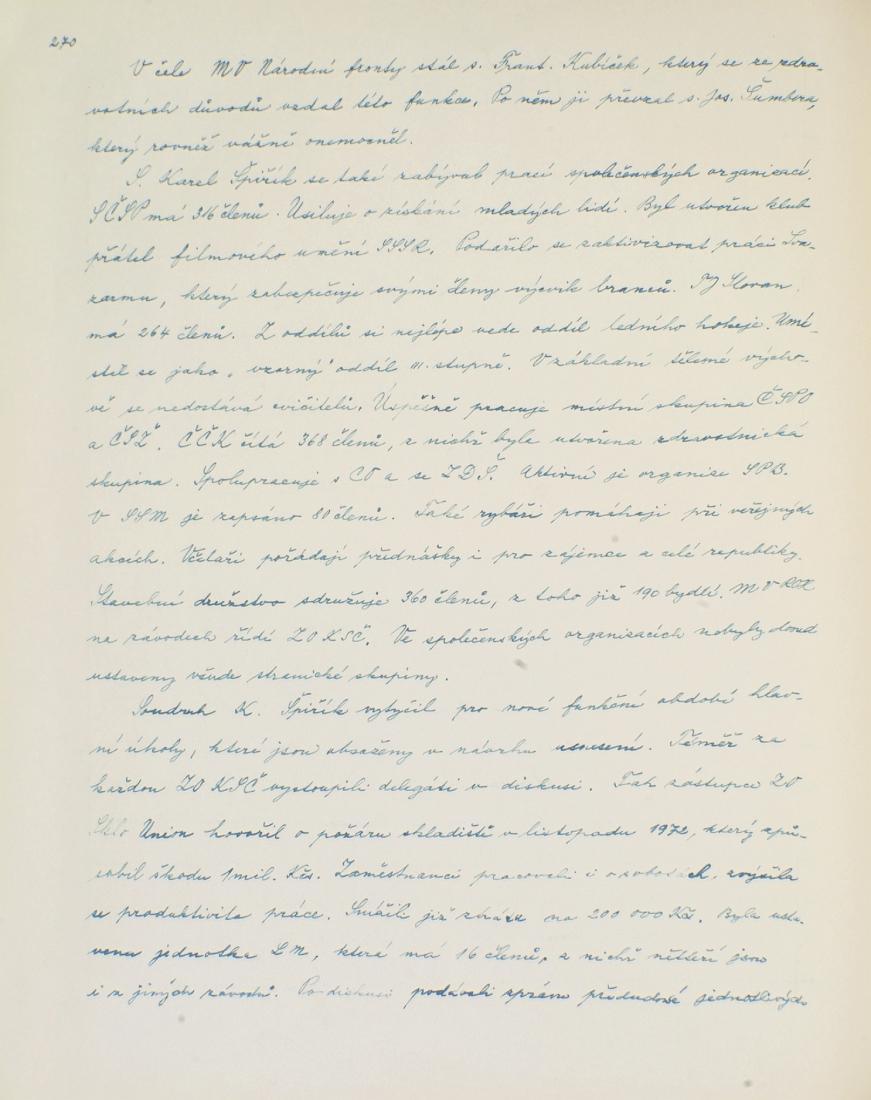 270
V čele MV Národní fronty stál s. Frant. Kubíček, který se ze zdra-
votních důvodů vzdal této funkce. Po něm ji převzal s. Jos. Šumbera,
který rovněž vážně onemocněl.
S. Karel Špiřík se také zabýval prací společenských organisací.
SČSP má 316 členů. Usiluje o získání mladých lidí. Byl utvořen klub
přátel filmového umění SSSR. Podařilo se zaktivizovat práci Sva-
zarmu, který zabezpečuje svými členy výcvik branců. TJ Slovan
má 264 členů. Z oddílů si nejlépe vede oddíl ledního hokeje. Umí-
stil se jako „vzorný" oddíl III. stupně. V základní tělesné výcho-
vě se nedostává cvičitelů. Úspěšně pracuje místní skupina ČSPO
a ČSŽ. ČČK čítá 368 členů, z nichž byla utvořena zdravotnická
skupina. Spolupracuje s CO a se ZDŠ. Aktivní je organizace SPB.
V SSM je zapsáno 80 členů. Také rybáři pomáhají při veřejných
akcích. Včelaři pořádají přednášky i pro zájemce z celé republiky.
Stavební družstvo sdružuje 360 členů, z toho již 190 bydlí. MV ROH
na závodech řídí ZO KSČ. Ve společenských organisacích nebyly dosud
ustaveny všude stranické skupiny.
Soudruh K. Špiřík vytyčil pro nové funkční období hlav-
ní úkoly, které jsou obsaženy v návrhu usnesení. Téměř za
každou ZO KSČ vystoupili delegáti v diskusi. Tak zástupce ZO
Sklo Union hovořil o požáru skladiště v listopadu 1972, který způ-
sobil škodu 1 mil. Kčs. Zaměstnanci pracovali i o sobotách, zvýšila
se produktivita práce. Snížili již ztrátu na 200 000 Kčs. Byla usta-
vena jednotka LM, která má 16 členů, z nichž někteří jsou
i z jiných závodů. Po diskusi podávali zprávu předsedové jednotlivých